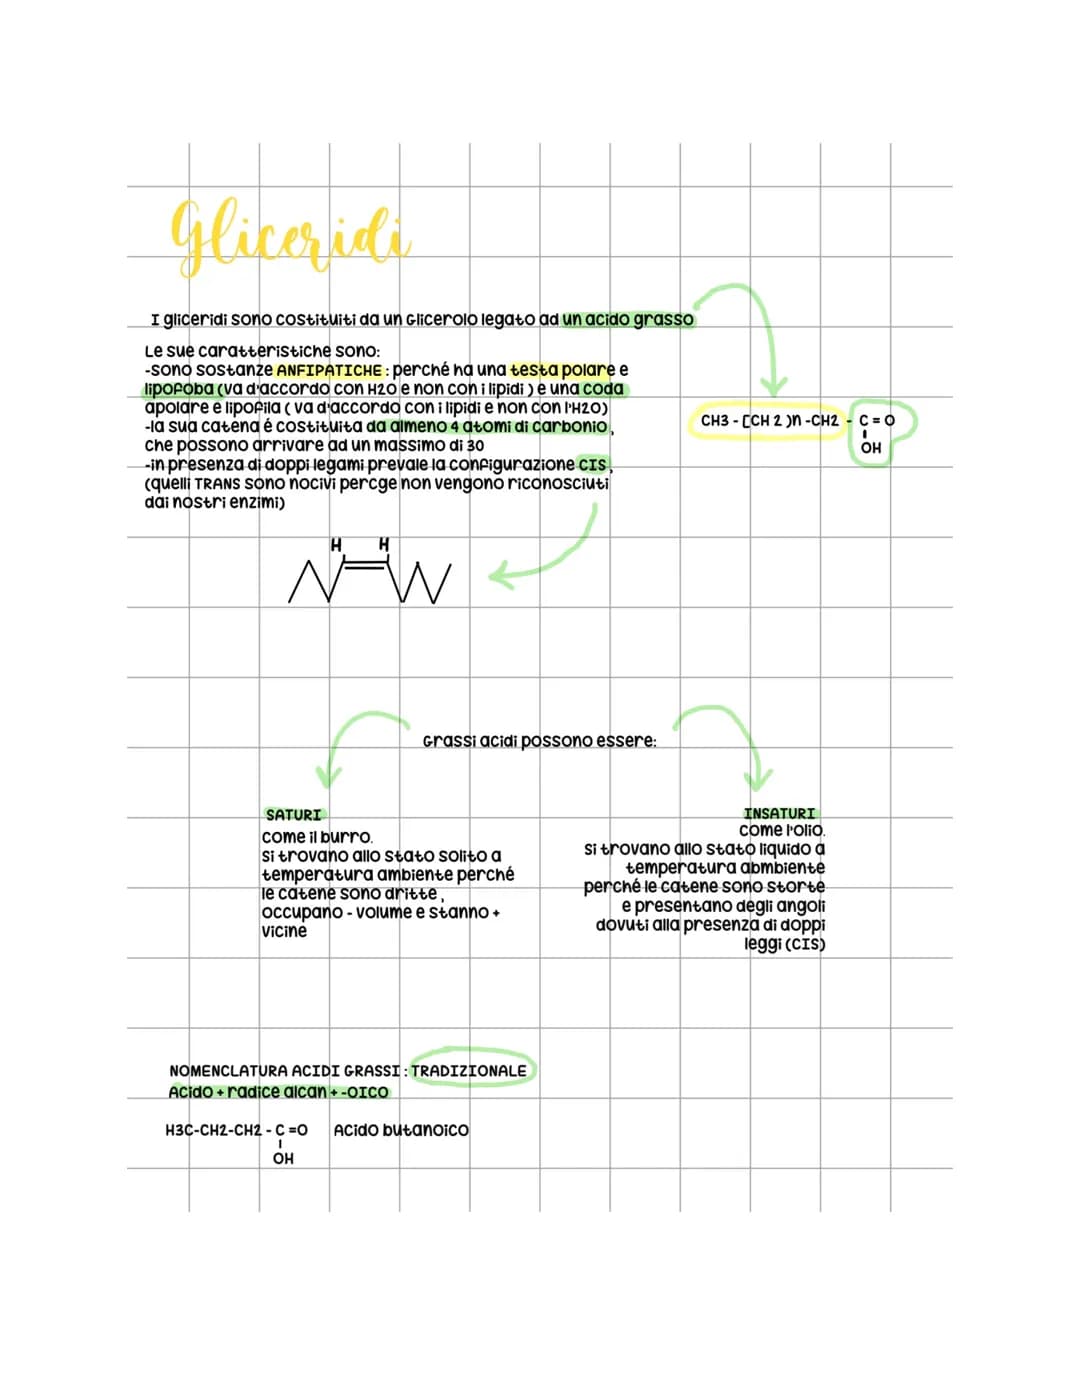 Gliceridi
I gliceridi sono costituiti da un Glicerolo legato ad un acido grasso
Le sue caratteristiche sono:
-sono sostanze ANFIPATICHE : perché ha una testa polare e
lipofoba (va d'accordo con H2O e non con i lipidi ) e una coda
apolare e lipofila ( va d'accordo con i lipidi e non con l'H2O)
-la sua catena é costituita da almeno 4 atomi di carbonio,
che possono arrivare ad un massimo di 30
-in presenza di doppi legami prevale la configurazione CIS,
(quelli TRANS sono nocivi percge non vengono riconosciuti
dai nostri enzimi)
CH3 - [CH 2 )n -CH2 - C = O
OH
H H
Grassi acidi possono essere:
SATURI
come il burro.
si trovano allo stato solito a
temperatura ambiente perché
le catene sono dritte,
occupano - volume e stanno +
vicine
INSATURI
come l'olio.
si trovano allo stato liquido a
temperatura abmbiente
perché le catene sono storte
e presentano degli angoli
dovuti alla presenza di doppi
leggi (CIS)
NOMENCLATURA ACIDI GRASSI : TRADIZIONALE
Acido + radice alcan + -OICO
H3C-CH2-CH2 - C =O Acido butanoico
OH